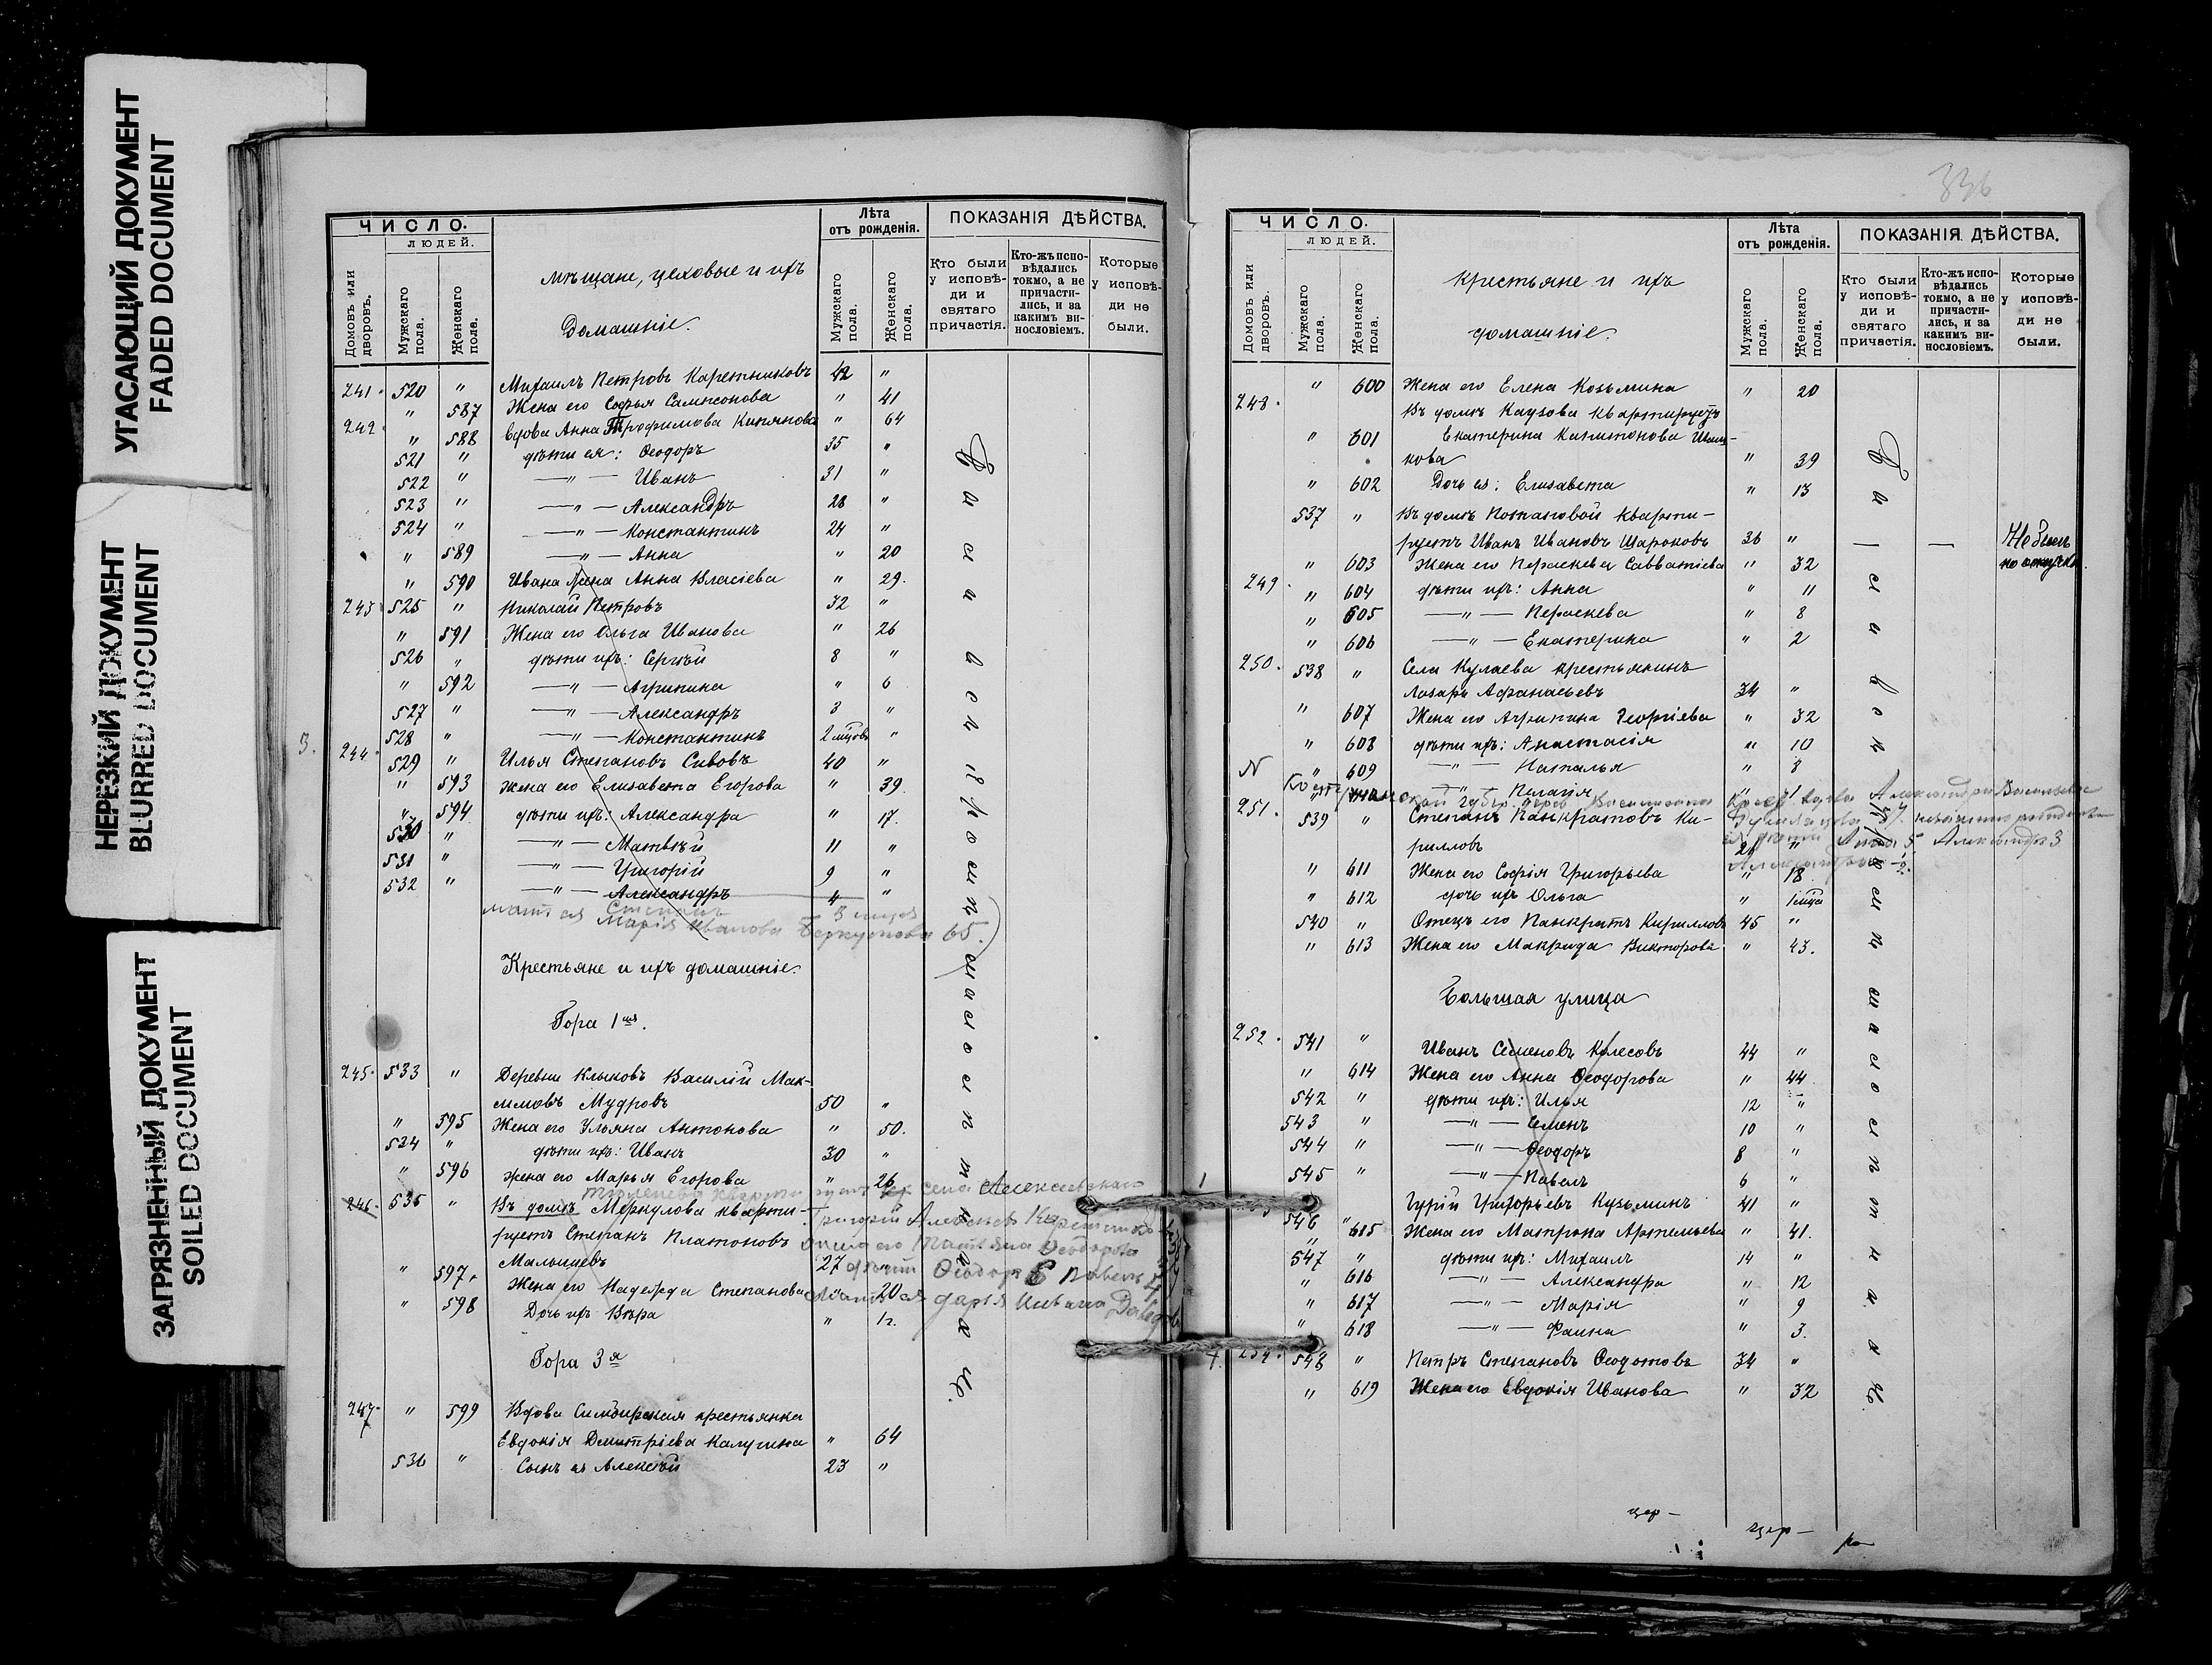 УГАСАЮЩИЙ ДОКУМЕНТ
FADED DOCUMENT
НЕРЕЗКИЙ ДОКУМЕНТ
BLURRED DOCUMENT
ЗАГРЯЗНЕННЫЙ ДОКУМЕНТ
SOILED DOCUMENT
ЧИСЛО.
ЛЮДЕЙ.
Домовъ или дворовъ.
Мужскаго пола.
Женскаго пола.
мѣщане, цеховые и ихъ
Домашніе.
Лѣта
отъ рожденія.
Мужскаго пола.
Женскаго пола.
ПОКАЗАНІЯ ДѢЙСТВА.
Кто были у исповѣди и святаго причастія.
Кто-жъ исповѣдались токмо, а не причастились, и за какимъ винословіемъ.
Которые у исповѣди не были.
241. 520 " Михаилъ Петровъ Каретниковъ 42 "
" 587 Жена его Софья Сампсонова " 41
242. " 588 вдова Анна Трофимова Кипянова " 64
521 " дѣти ея: Ѳеодоръ 35 "
522 " —"— Иванъ 31 "
523 " —"— Александръ 28 "
524 " —"— Константинъ 24 "
" 589 —"— Анна " 20
" 590 Ивана жена Анна Власіева " 29.
243 525 " Николай Петровъ 32 "
" 591 Жена его Ольга Иванова " 26
526 " дѣти ихъ: Сергѣй 8 "
" 592 —"— Агрипина " 6
527 " —"— Александръ 3 "
528 " —"— Константинъ 2 мѣсъ "
3. 244. 529 " Илья Степановъ Сивовъ 40 "
" 593 Жена его Елизавета Егорова " 39.
" 594 дѣти ихъ: Александра " 17.
530 " —"— Матвѣй 11 "
531 " —"— Григорій 9 "
532 " —"— Александръ 4 "
Степанъ 3 мѣсъ
мать ея Марія Иванова 65.
Крестьяне и ихъ домашніе.
Гора 1ая.
245. 533 " Деревни Клыковъ Василій Мак-
симовъ Мудровъ 50 "
" 595 Жена его Ульяна Антонова " 50.
524 " дѣти ихъ: Иванъ 30 "
" 596 Жена его Марья Егорова " 26
квартируетъ кр села Алексѣевскаго
246. 535 " Въ домѣ Меркулова кварти-
Григорій Алексѣевъ
руетъ Степанъ Платоновъ
жена его Татьяна Ѳеодорова
Малышевъ 27 "
дѣти Ѳеодоръ 8 Павелъ
" 597. Жена его Надежда Степанова " 20
мать ея Дарья
" 598 Дочь ихъ Вѣра " 1г.
Гора 3я
247. " 599 Вдова Симбирская крестьянка
Евдокія Дмитріева Калугина " 64
536 " Сынъ ея Алексѣй 23 "
336
ЧИСЛО.
ЛЮДЕЙ.
Домовъ или дворовъ.
Мужскаго пола.
Женскаго пола.
крестьяне и ихъ
домашніе.
Лѣта
отъ рожденія.
Мужскаго пола.
Женскаго пола.
ПОКАЗАНІЯ ДѢЙСТВА.
Кто были у исповѣди и святаго причастія.
Кто-жъ исповѣдались токмо, а не причастились, и за какимъ винословіемъ.
Которые у исповѣди не были.
" 600 Жена его Елена Козьмина " 20
248. Въ домѣ Каузова квартируетъ
" 601 Екатерина Капитонова
кова " 39
" 602 Дочь ея: Елизавета " 13
537 " Въ домѣ Потаповой кварти-
руетъ Иванъ Ивановъ Шароновъ 36 " — — Не былъ
" 603 Жена его Пераскева Савватіева " 32
249. " 604 дѣти ихъ: Анна " 11
" 605 —"— Пераскева " 8
" 606 —"— Екатерина " 2
250. 538 " Села Кулаева крестьянинъ
Лазарь Афанасьевъ 34 "
" 607 Жена его Агрипина Георгіева " 32
" 608 дѣти ихъ: Анастасія " 10
N " 609 —"— Наталья " 8
—"— Пелагія " 1
Костромской губер. вдова Александра Васильева
251. 539 " Степанъ Панкратовъ Ки-
ея дѣти Анна 5 Александръ 3
рилловъ 20 "
" 611 Жена его Софія Григорьева " 18
" 612 дочь ихъ Ольга " 1 мѣсяц
540 " Отецъ его Панкратъ Кирилловъ 45 "
" 613 Жена его Макрида Викторова " 43.
Большая улица
252. 541 " Иванъ Семеновъ Колесовъ 44 "
" 614 Жена его Анна Ѳеодорова " 44
542 " дѣти ихъ: Илья 12 "
543 " —"— Семенъ 10 "
544 " —"— Ѳеодоръ 8 "
545 " —"— Павелъ 6 "
546 " Гурій Григорьевъ Кузьминъ 41 "
" 615 Жена его Матрона Артемьева " 41.
547 " дѣти ихъ: Михаилъ 14 "
" 616 —"— Александра " 12
" 617 —"— Марія " 9
" 618 —"— Фаина " 3.
254. 548 " Петръ Степановъ Ѳедотовъ 34 "
" 619 Жена его Евдокія Иванова " 32